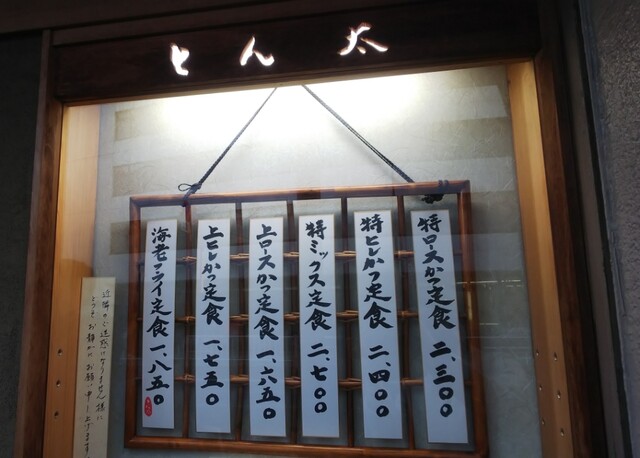 とん太
特ロースかつ定食 二、三〇〇
特ヒレかつ定食 二、四〇〇
特ミックス定食 二、七〇〇
上ロースかつ定食 一、六五〇
上ヒレかつ定食 一、七五〇
海老フライ定食 一、八五〇
近隣のご迷惑になりません様に
どうぞお静かにお願い申し上げます